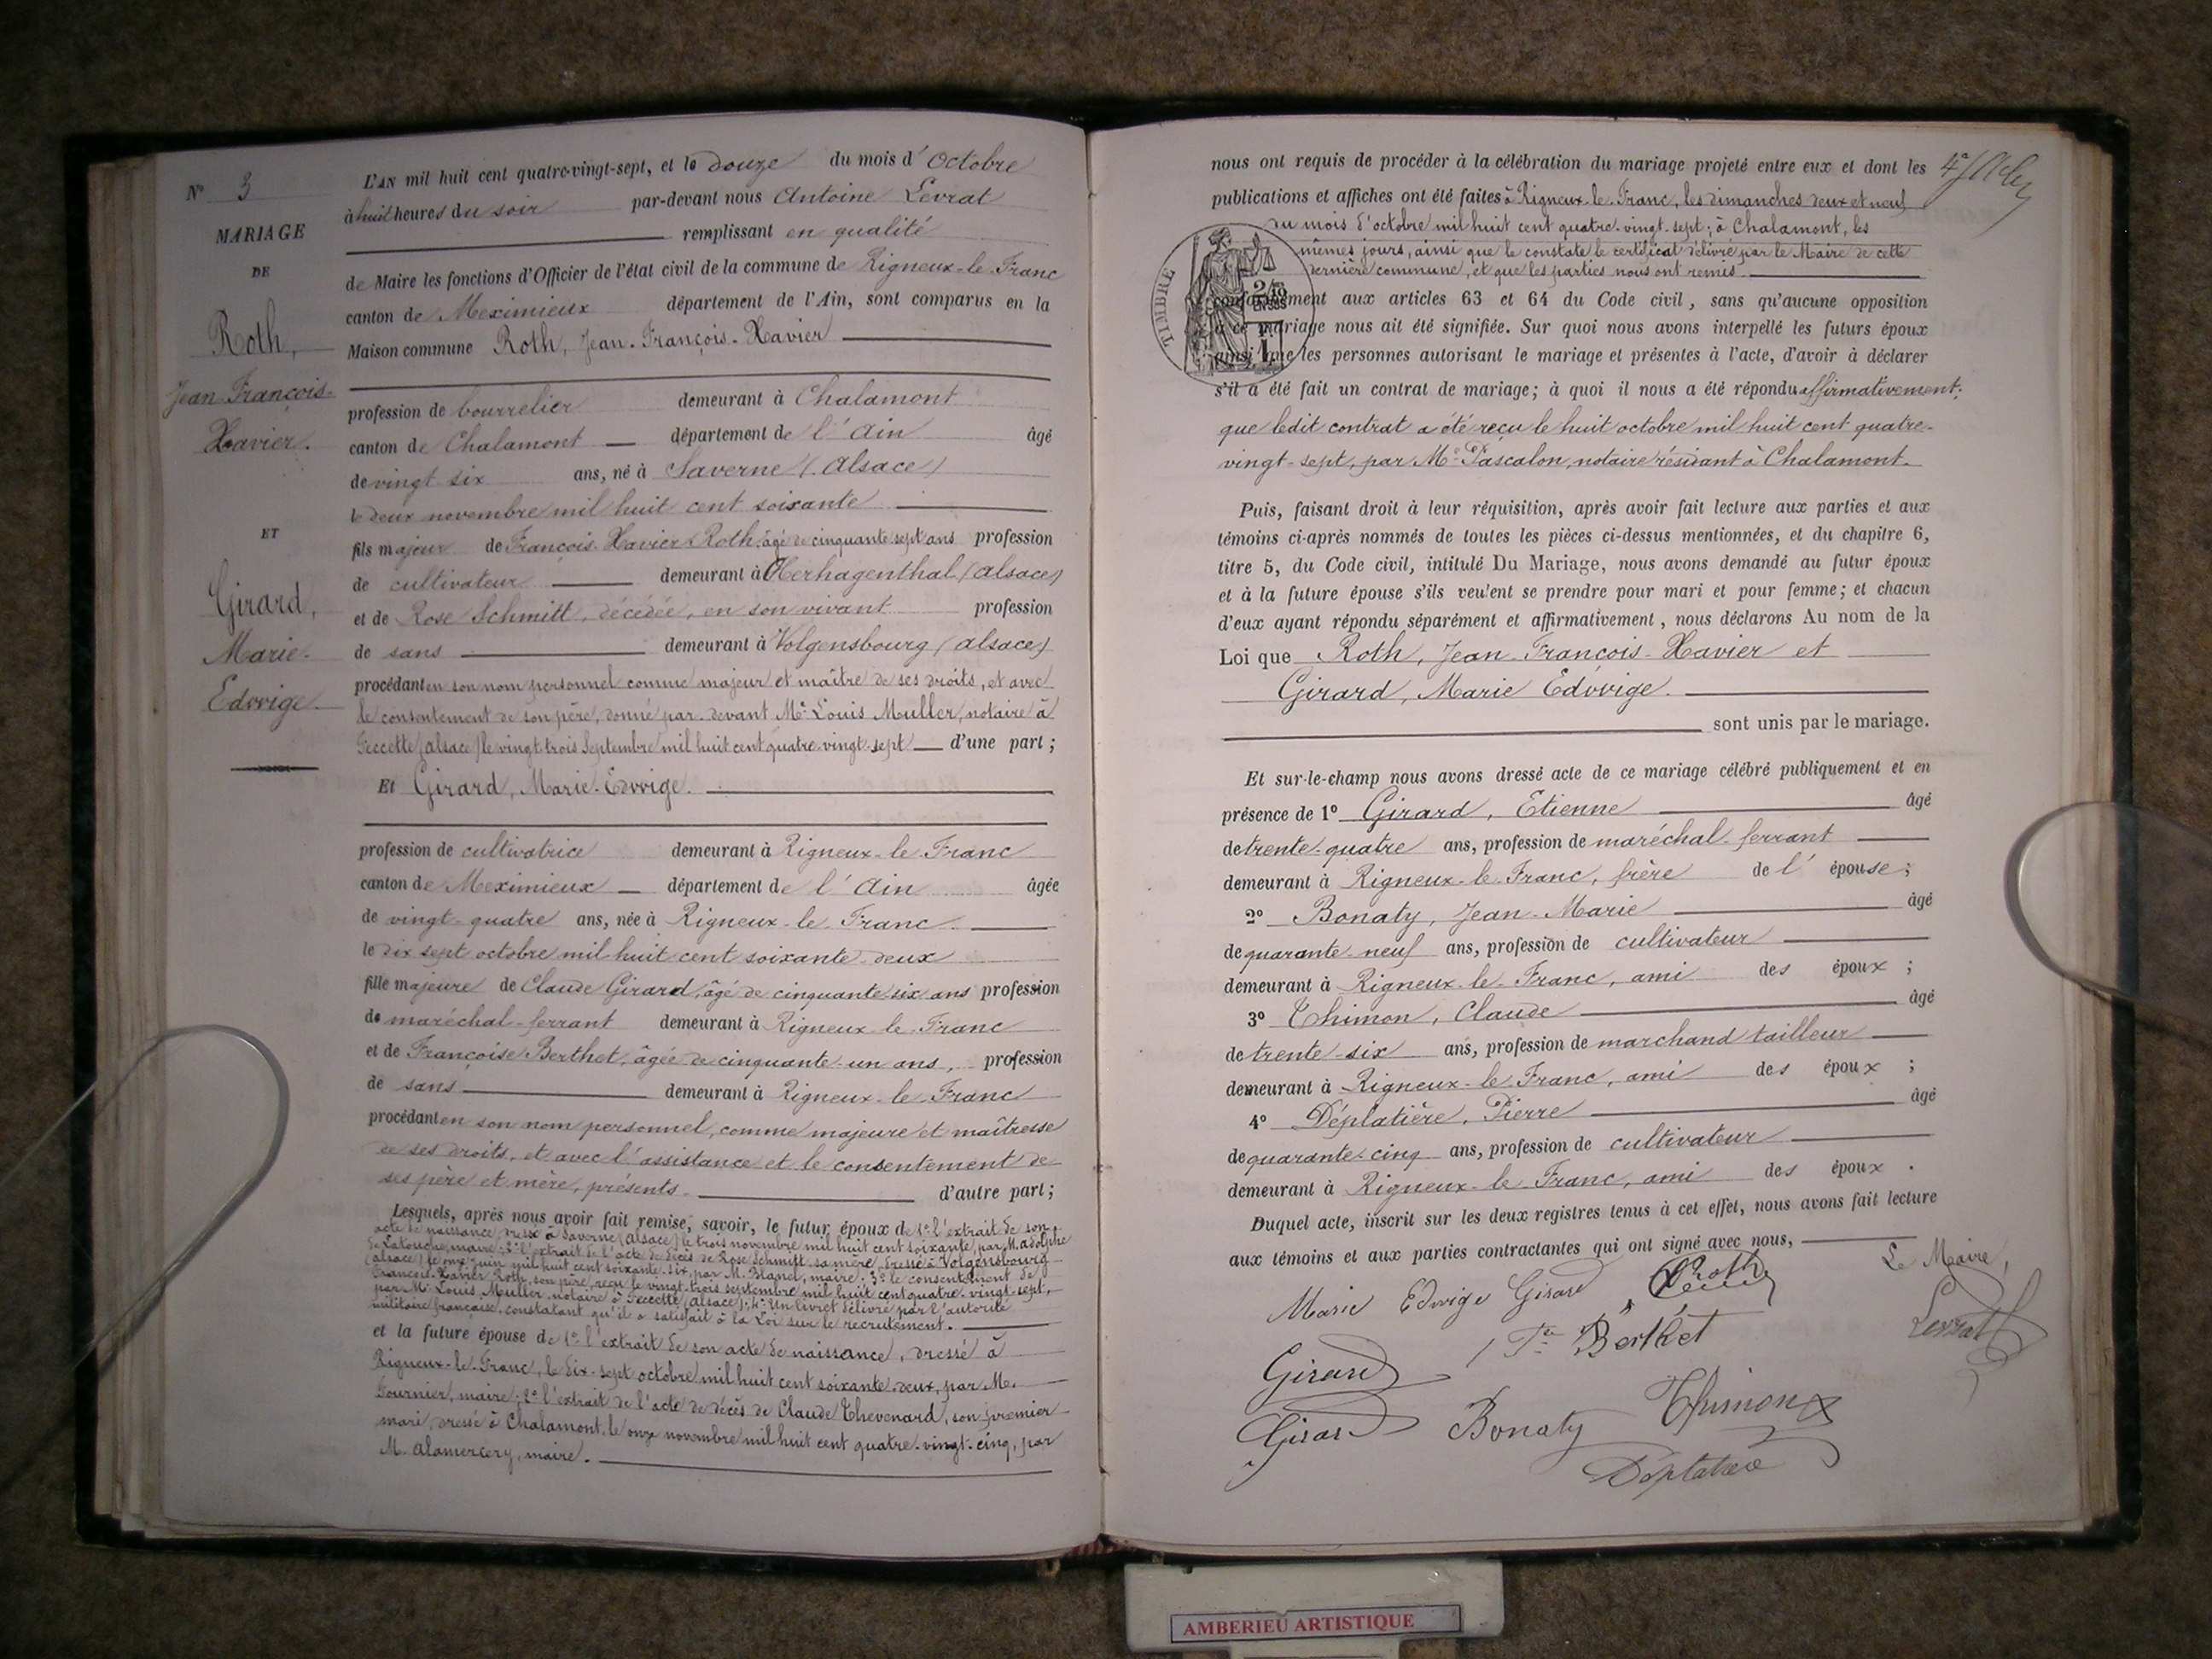 N° 3
MARIAGE
DE
Roth,
Jean-François-
Xavier.
ET
Girard,
Marie-
Edwige.
L'AN mil huit cent quatre-vingt-sept, et le douze du mois d'Octobre
à huit heures du soir par-devant nous Antoine Levrat
remplissant en qualité
de Maire les fonctions d'Officier de l'état civil de la commune de Rigneux-le-Franc
canton de Meximieux département de l'Ain, sont comparus en la
Maison commune Roth, Jean-François-Xavier
profession de bourrelier demeurant à Chalamont
canton de Chalamont département de l'Ain âgé
de vingt six ans, né à Saverne (Alsace)
le deux novembre mil huit cent soixante
fils majeur de François-Xavier Roth, âgé de cinquante sept ans profession
de cultivateur demeurant à (Alsace)
et de Rose Schmitt, décédée, en son vivant profession
de sans demeurant à Volgensbourg (Alsace)
procédant en son nom personnel comme majeur et maître de ses droits, et avec
le consentement de son père, donné par-devant Me Louis Muller, notaire à
(Alsace) le vingt-trois Septembre mil huit cent quatre-vingt-sept d'une part;
Et Girard, Marie-Edwige.
profession de cultivatrice demeurant à Rigneux-le-Franc
canton de Meximieux département de l'Ain âgée
de vingt-quatre ans, née à Rigneux-le-Franc
le dix sept octobre mil huit cent soixante-deux
fille majeure de Claude Girard, âgé de cinquante-six ans profession
de maréchal-ferrant demeurant à Rigneux-le-Franc
et de Françoise Berthet, âgée de cinquante-un ans, profession
de sans demeurant à Rigneux-le-Franc
procédant en son nom personnel, comme majeure et maîtresse
de ses droits, et avec l'assistance et le consentement de
ses père et mère, présents. d'autre part;
Lesquels, après nous avoir fait remise, savoir, le futur époux de 1° l'extrait de son
acte de naissance, dressé à Saverne (Alsace) le trois novembre mil huit cent soixante, par M. Adolphe
de Latouche, maire; 2° l'extrait de l'acte de décès de Rose Schmitt, sa mère, dressé à Volgensbourg
(Alsace) le onze juin mil huit cent soixante-six, par M. Blanel, maire; 3° le consentement de
François-Xavier Roth, son père, reçu le vingt-trois septembre mil huit cent quatre-vingt-sept,
par Me Louis Muller, notaire à (Alsace); 4° Un livret délivré par l'autorité
militaire française, constatant qu'il a satisfait à la Loi sur le recrutement.
et la future épouse de 1° l'extrait de son acte de naissance, dressé à
Rigneux-le-Franc, le dix-sept octobre mil huit cent soixante-deux, par M.
Fournier, maire; 2° l'extrait de l'acte de décès de Claude Thevenard, son premier
mari, dressé à Chalamont, le onze novembre mil huit cent quatre-vingt-cinq, par
M. Alamercery, maire.
nous ont requis de procéder à la célébration du mariage projeté entre eux et dont les
publications et affiches ont été faites à Rigneux-le-Franc, les dimanches deux et neuf
du mois d'octobre mil huit cent quatre-vingt-sept; à Chalamont, les
mêmes jours, ainsi que le constate le certificat délivré par le Maire de cette
dernière commune, et que les parties nous ont remis.
TIMBRE
2/10 EN SUS
conformément aux articles 63 et 64 du Code civil, sans qu'aucune opposition
à ce mariage nous ait été signifiée. Sur quoi nous avons interpellé les futurs époux
ainsi que les personnes autorisant le mariage et présentes à l'acte, d'avoir à déclarer
s'il a été fait un contrat de mariage; à quoi il nous a été répondu affirmativement;
que ledit contrat a été reçu le huit octobre mil huit cent quatre-
vingt-sept, par Me Pascalon, notaire résidant à Chalamont.
Puis, faisant droit à leur réquisition, après avoir fait lecture aux parties et aux
témoins ci-après nommés de toutes les pièces ci-dessus mentionnées, et du chapitre 6,
titre 5, du Code civil, intitulé Du Mariage, nous avons demandé au futur époux
et à la future épouse s'ils veulent se prendre pour mari et pour femme; et chacun
d'eux ayant répondu séparément et affirmativement, nous déclarons Au nom de la
Loi que Roth, Jean-François-Xavier et
Girard, Marie Edwige.
sont unis par le mariage.
Et sur-le-champ nous avons dressé acte de ce mariage célébré publiquement et en
présence de 1° Girard, Etienne âgé
de trente-quatre ans, profession de maréchal-ferrant
demeurant à Rigneux-le-Franc, frère de l'épouse;
2° Bonaty, Jean-Marie âgé
de quarante-neuf ans, profession de cultivateur
demeurant à Rigneux-le-Franc, ami des époux;
3° Thimon, Claude âgé
de trente-six ans, profession de marchand tailleur
demeurant à Rigneux-le-Franc, ami des époux;
4° Déplatière, Pierre âgé
de quarante-cinq ans, profession de cultivateur
demeurant à Rigneux-le-Franc, ami des époux.
Duquel acte, inscrit sur les deux registres tenus à cet effet, nous avons fait lecture
aux témoins et aux parties contractantes qui ont signé avec nous,
Le Maire,
Marie Edwige Girard Roth
Levrat
Girard Fse Berthet
Girard Bonaty Thimon
AMBERIEU ARTISTIQUE